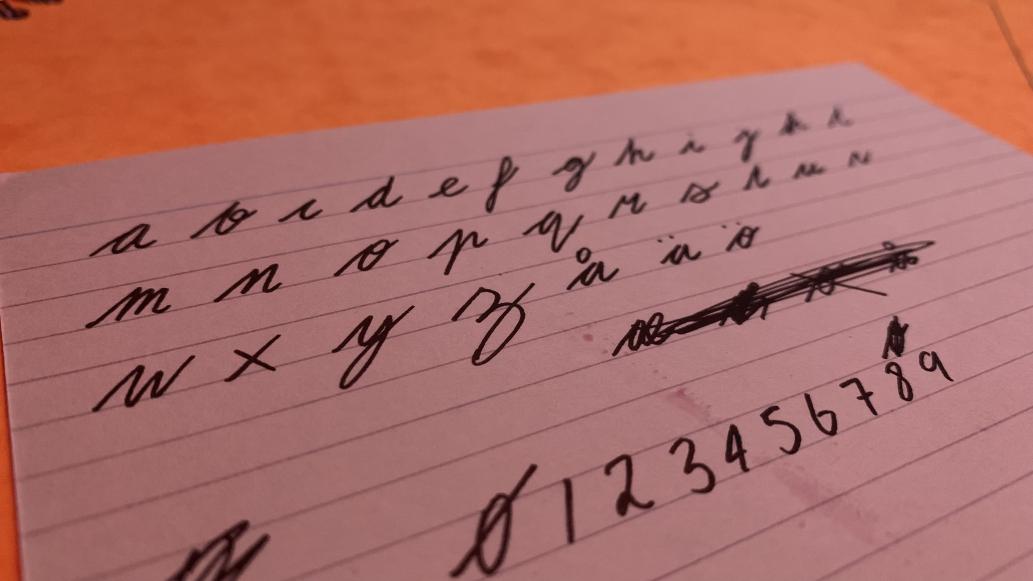 a b c d e f g h i j k l
m n o p q r s t u v
w x y z å ä ö
0 1 2 3 4 5 6 7 8 9